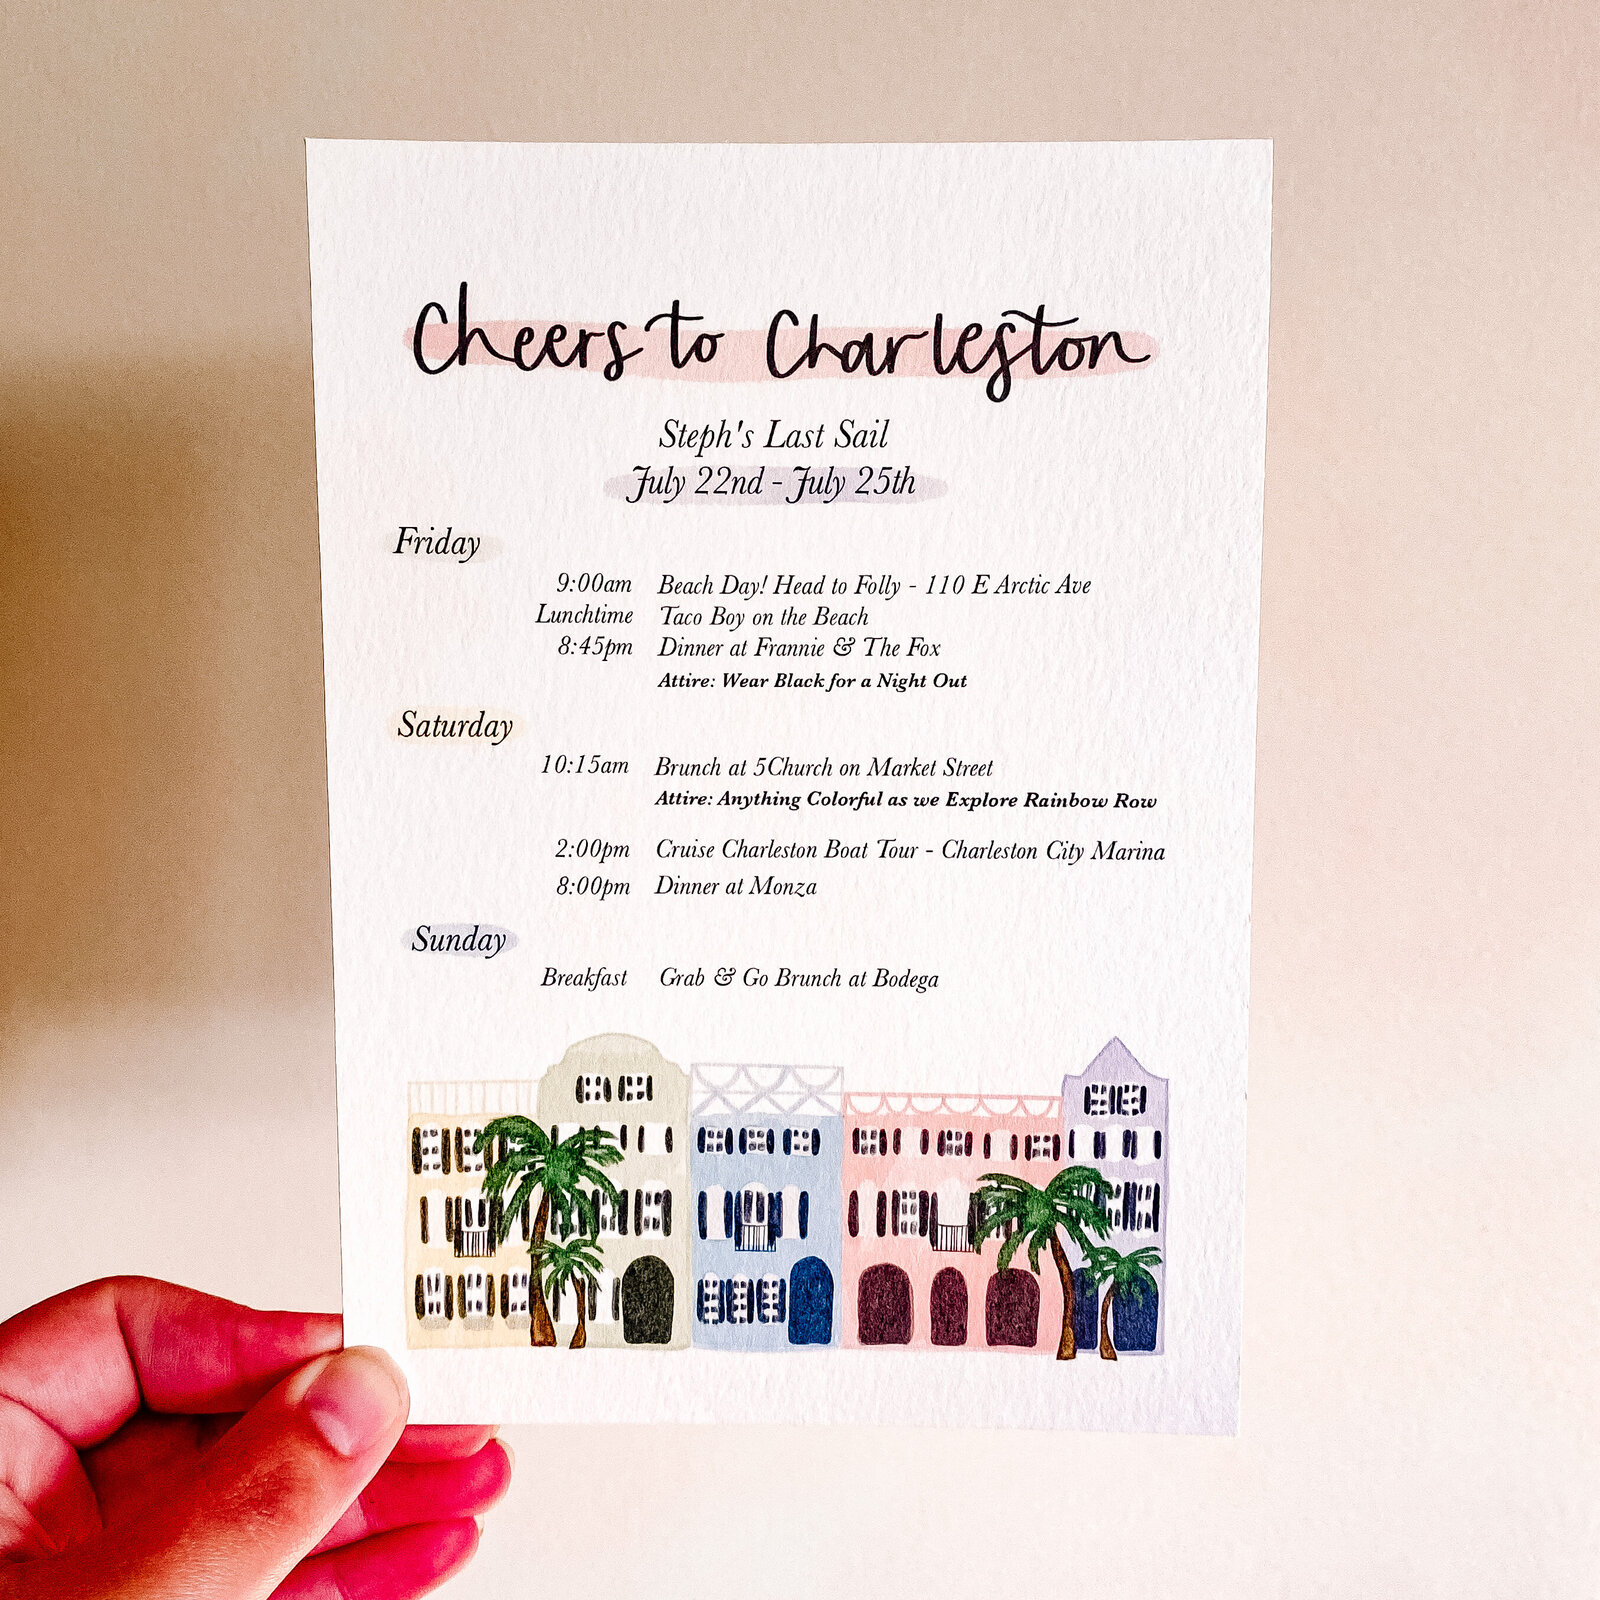 Cheers to Charleston
Steph's Last Sail
July 22nd - July 25th
Friday
9:00am Beach Day! Head to Folly - 110 E Arctic Ave
Lunchtime Taco Boy on the Beach
8:45pm Dinner at Frannie & The Fox
Attire: Wear Black for a Night Out
Saturday
10:15am Brunch at 5Church on Market Street
Attire: Anything Colorful as we Explore Rainbow Row
2:00pm Cruise Charleston Boat Tour - Charleston City Marina
8:00pm Dinner at Monza
Sunday
Breakfast Grab & Go Brunch at Bodega